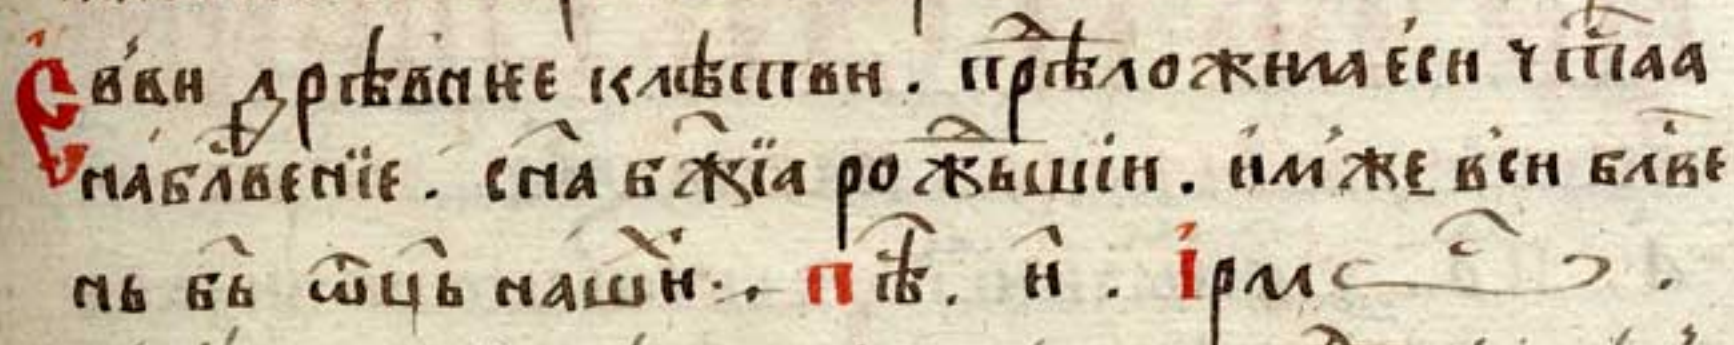 Е҆ѵ҆вжи дрѣвнꙗѧ клѣтвы . прѣложила е҆си чⷭ҇таа
на бл҃вение . сн҃а бж҃їа рожⷣьшїи . и҆мже вси бл҃ве
нь бь҃ ѿц҃ь нашиⷯ ⁘ пѣⷭ҇ . и҃ . І҆рмⷭ҇ .